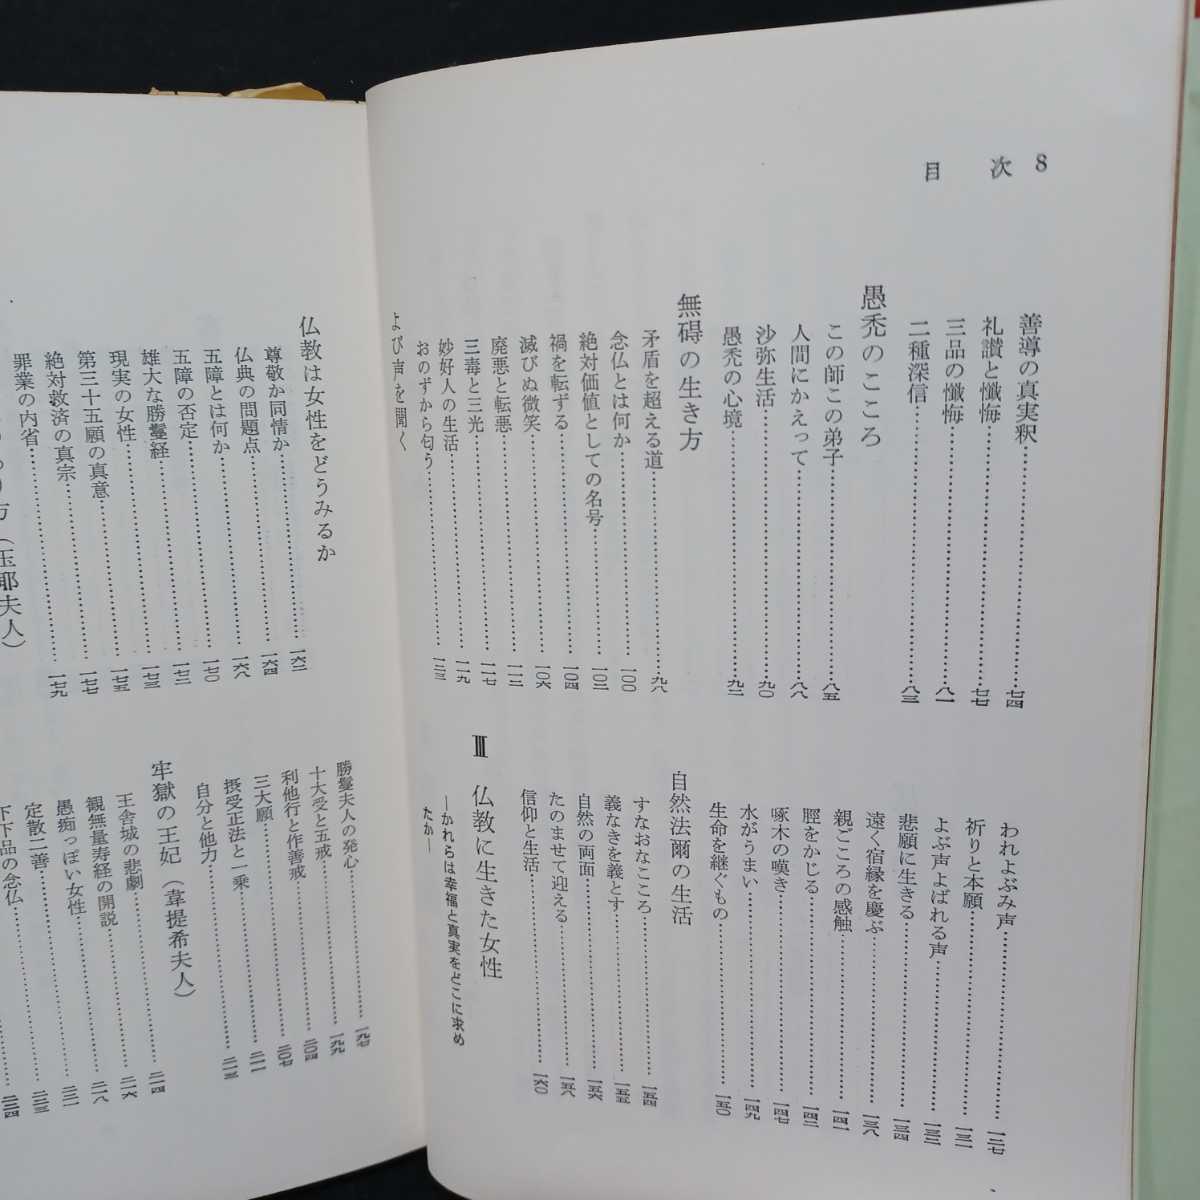 目次 8
善導の真実釈……七四
礼讃と懺悔……七七
三品の懺悔……八一
二種深信……八三
愚禿のこころ
この師この弟子……八五
人間にかえって……八八
沙弥生活……九〇
愚禿の心境……九二
無碍の生き方
矛盾を超える道……九六
念仏とは何か……一〇〇
絶対価値としての名号……一〇二
禍を転ずる……一〇四
滅びぬ微笑……一〇六
廃悪と転悪……一一二
三毒と三光……一一七
妙好人の生活……一一九
おのずから匂う……一二三
よび声を聞く
われよぶみ声……一二七
祈りと本願……一三一
よぶ声よばれる声……一三二
悲願に生きる……一三四
遠く宿縁を慶ぶ……一三八
親ごころの感触……一四一
脛をかじる……一四二
啄木の嘆き……一四七
水がうまい……一四九
生命を継ぐもの……一五〇
自然法爾の生活
すなおなこころ……一五四
義なきを義とす……一五五
自然の両面……一五六
たのませて迎える……一五八
信仰と生活……一六〇
Ⅲ 仏教に生きた女性
―かれらは幸福と真実をどこに求め
たか―
仏教は女性をどうみるか
尊敬か同情か……一六二
仏典の問題点……一六四
五障とは何か……一六八
五障の否定……一七〇
雄大な勝鬘経……一七二
現実の女性……一七三
第三十五願の真意……一七五
絶対救済の真宗……一七七
罪業の内省……一七九
方（玉耶夫人）
勝鬘夫人の発心……一九七
十大受と五戒……一九九
利他行と作善戒……二〇四
三大願……二〇七
摂受正法と一乗……二一一
自分と他力……二一三
牢獄の王妃（韋提希夫人）
王舎城の悲劇……二一四
観無量寿経の開説……二一六
愚痴っぽい女性……二一八
定散二善……二二一
下下品の念仏……二二三
二二四